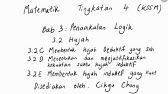 Matematik Tingkatan 4 (KSSM)
Bab 3: Penaakulan Logik
3.2 Hujah
3.2C Membentuk Hujah Deduktif yang Sah
3.2D Menentukan dan menjustifikasikan kekuatan suatu hujah induktif
3.2E Membentuk hujah induktif yang kuat
Disediakan oleh: Cikgu Chong